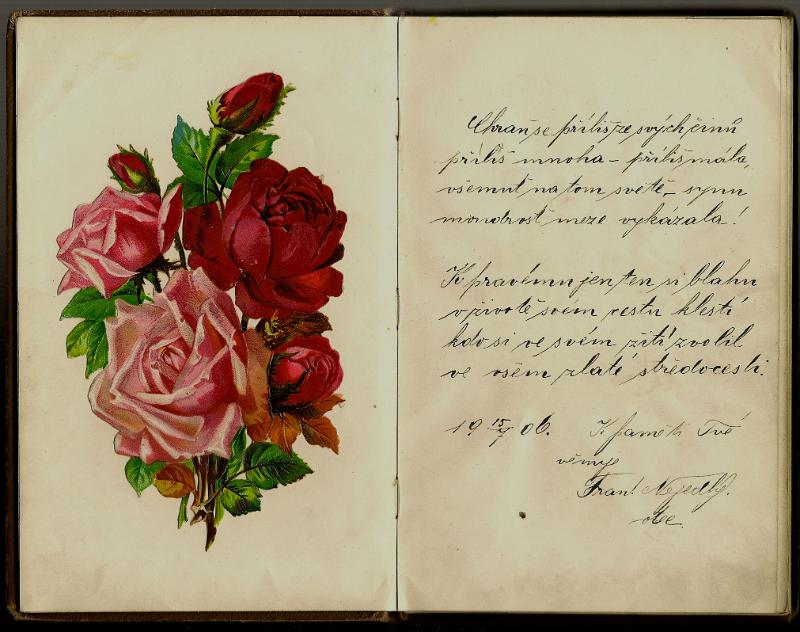 Chraň se příliš ze svých činů
příliš mnoha – příliš mála,
všemut na tom světě, synu
moudrost meze vykázala!
K pravému jen ten si blahu
v životě svém cestu klestí
kdo si ve svém žití zvolil
ve všem zlaté středocestí.
19 15/7 06. K paměti Tvé
věnuje
Frant. Nejedlý.
otec.